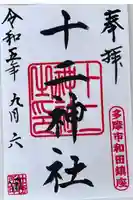 奉拝
十二神社
多摩市和田鎮座
令和五年九月六